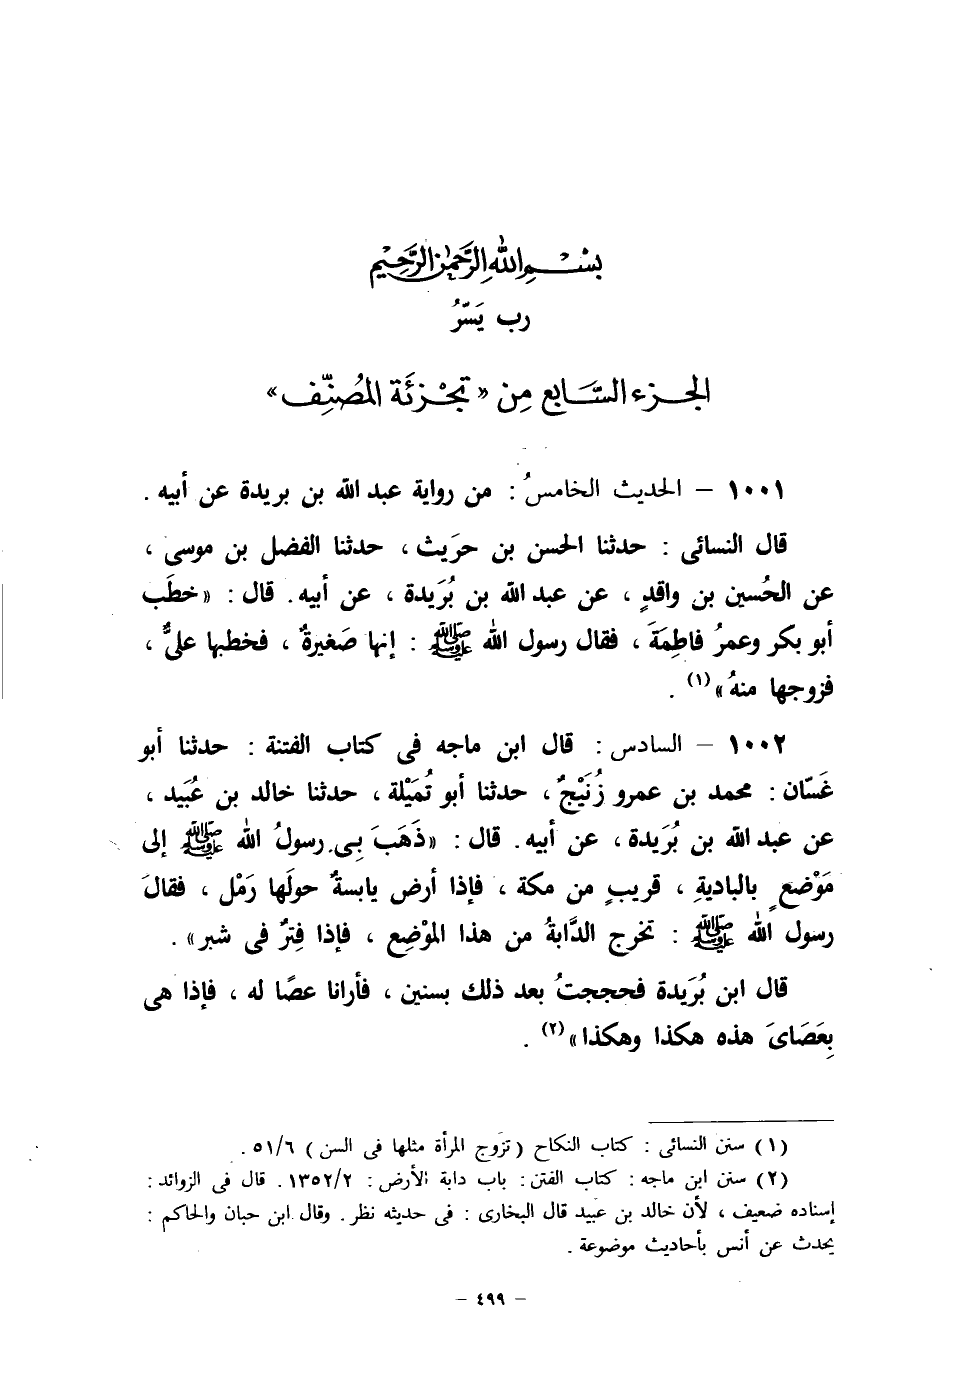 بِسْمِ اللهِ الرَّحْمٰنِ الرَّحِيْمِ
رب يَسّرُ
الجزء السَّابع مِن « تَجْزئَة المُصَنِّف »
١٠٠١ – الحديث الخامسُ : من رواية عبد الله بن بريدة عن أبيه .
قال النسائى : حدثنا الحسن بن حرَيث ، حدثنا الفضل بن موسى ،
عن الحُسين بن واقدٍ ، عن عبد الله بن بُرَيدة ، عن أبيه . قال : « خطَب
أبو بكر وعمرُ فاطِمَةَ ، فقال رسول الله ﷺ : إنها صَغيرةٌ ، فخطبها علىٌّ ،
فزوجها منهُ »(١) .
١٠٠٢ – السادس : قال ابن ماجه فى كتاب الفتنة : حدثنا أبو
غَسّان : محمد بن عمرو زُنَيْجٌ ، حدثنا أبو تُمَيْلة ، حدثنا خالد بن عُبَيد ،
عن عبد الله بن بُرَيدة ، عن أبيه . قال : « ذَهَبَ بِى رسولُ الله ﷺ إلى
مَوْضعٍ بالباديةِ ، قريبٍ من مكة ، فإذا أرض يابسةٌ حولَها رَمْل ، فقالَ
رسول الله ﷺ : تخرج الدَّابةُ من هذا الموْضِع ، فإذا فِترٌ فى شبر » .
قال ابن بُرَيدة فحججتُ بعد ذلك بسنين ، فأرانا عصًا له ، فإذا هى
بِعَصَاىَ هذه هكذا وهكذا »(٢) .
(١) سنن النسائى : كتاب النكاح ( تزَوج المرأة مثلها فى السن ) ٥١/٦ .
(٢) سنن ابن ماجه : كتاب الفتن : باب دابة الأرض : ١٣٥٢/٢ . قال فى الزوائد :
إسناده ضعيف ، لأن خالد بن عبيد قال البخارى : فى حديثه نظر . وقال ابن حبان والحاكم :
يحدث عن أنس بأحاديث موضوعة .
– ٤٩٩ –